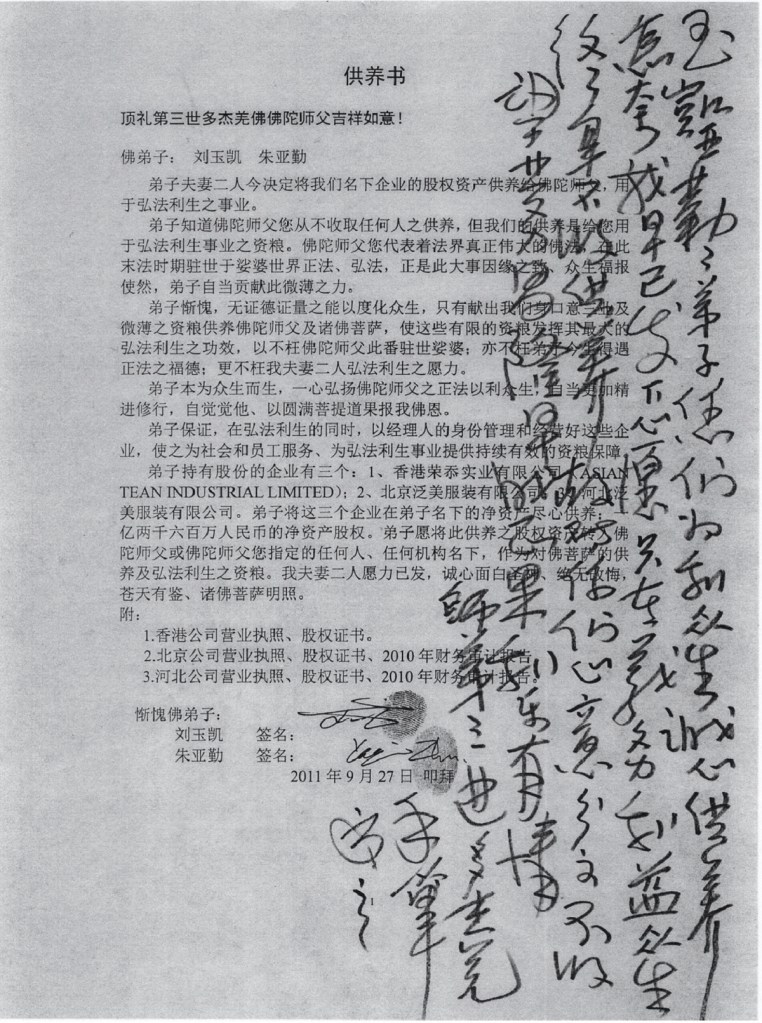 供养书
顶礼第三世多杰羌佛佛陀师父吉祥如意！
佛弟子： 刘玉凯 朱亚勤
弟子夫妻二人今决定将我们名下企业的股权资产供养给佛陀师父，用
于弘法利生之事业。
弟子知道佛陀师父您从不收取任何人之供养，但我们的供养是给您用
于弘法利生事业之资粮。佛陀师父您代表着法界真正伟大的佛法，在此
末法时期驻世于娑婆世界正法、弘法，正是此大事因缘之致、众生福报
使然，弟子自当贡献此微薄之力。
弟子惭愧，无证德证量之能以度化众生，只有献出我们身口意三业及
微薄之资粮供养佛陀师父及诸佛菩萨，使这些有限的资粮发挥其最大的
弘法利生之功效，以不枉佛陀师父此番驻世娑婆；亦不枉弟子今生得遇
正法之福德；更不枉我夫妻二人弘法利生之愿力。
弟子本为众生而生，一心弘扬佛陀师父之正法以利众生，自当更加精
进修行，自觉觉他、以圆满菩提道果报我佛恩。
弟子保证，在弘法利生的同时，以经理人的身份管理和经营好这些企
业，使之为社会和员工服务、为弘法利生事业提供持续有效的资粮保障。
弟子持有股份的企业有三个：1、香港荣忝实业有限公司（ASIAN
TEAN INDUSTRIAL LIMITED）；2、北京泛美服装有限公司；3、河北泛
美服装有限公司。弟子将这三个企业在弟子名下的净资产尽心供养：
亿两千六百万人民币的净资产股权。弟子愿将此供养之股权资产转入佛
陀师父或佛陀师父您指定的任何人、任何机构名下，作为对佛菩萨的供
养及弘法利生之资粮。我夫妻二人愿力已发，诚心面白圣师，绝无改悔，
苍天有鉴、诸佛菩萨明照。
附：
1.香港公司营业执照、股权证书。
2.北京公司营业执照、股权证书、2010 年财务审计报告。
3.河北公司营业执照、股权证书、2010 年财务审计报告。
惭愧佛弟子：
刘玉凯 签名：
朱亚勤 签名：
2011 年 9 月 27 日 叩拜
玉凯亚勤二弟子你们为利众生诚心供养
我早已发下心愿只在义务利益众生
不收供养故对你们心意分文不收
望 早成正果利乐有情
师第三世多杰羌
手笔
1